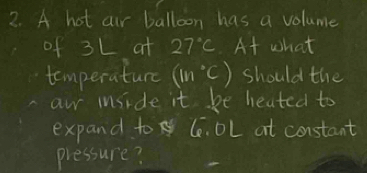 2. A hot air balloon has a volume
of 3L at 27°C. At what
temperature (in °C) should the
air inside it be heated to
expand to 6.0L at constant
pressure?